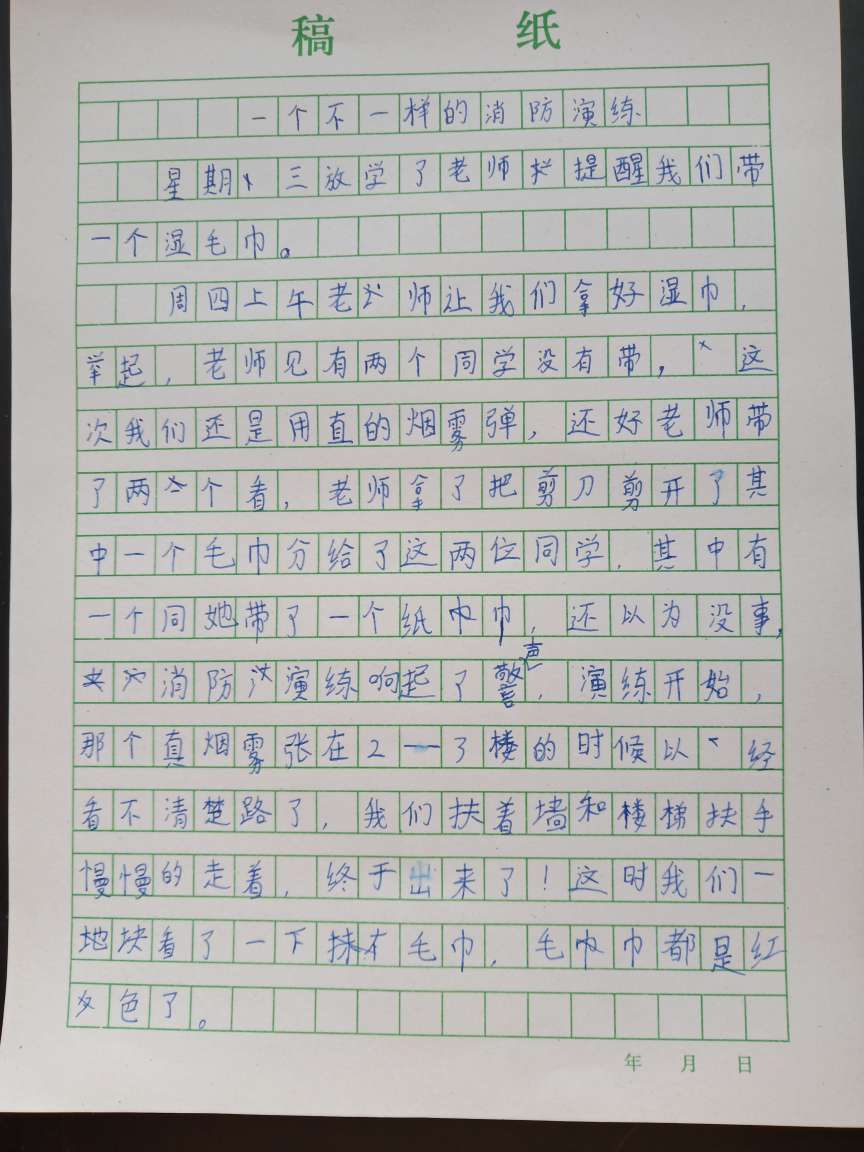 稿 纸
一个不一样的消防演练
星期三放学了老师提醒我们带
一个湿毛巾。
周四上午老师让我们拿好湿巾，
举起，老师见有两个同学没有带，这
次我们还是用直的烟雾弹，还好老师带
了两个看，老师拿了把剪刀剪开了其
中一个毛巾分给了这两位同学，其中有
一个同她带了一个纸巾巾，还以为没事，
消防演练响起了警声，演练开始，
那个真烟雾张在2一了楼的时候以经
看不清楚路了，我们扶着墙和楼梯扶手
慢慢的走着，终于出来了！这时我们一
地块看了一下抹布毛巾，毛巾巾都是红
色了。
年 月 日